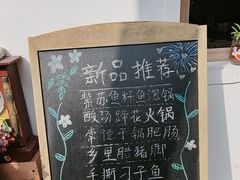 新品推荐
紫苏鱼籽鱼泡锅
酸汤蹄花火锅
常德干锅肥肠
乡里腊猪脚
手撕刁子鱼